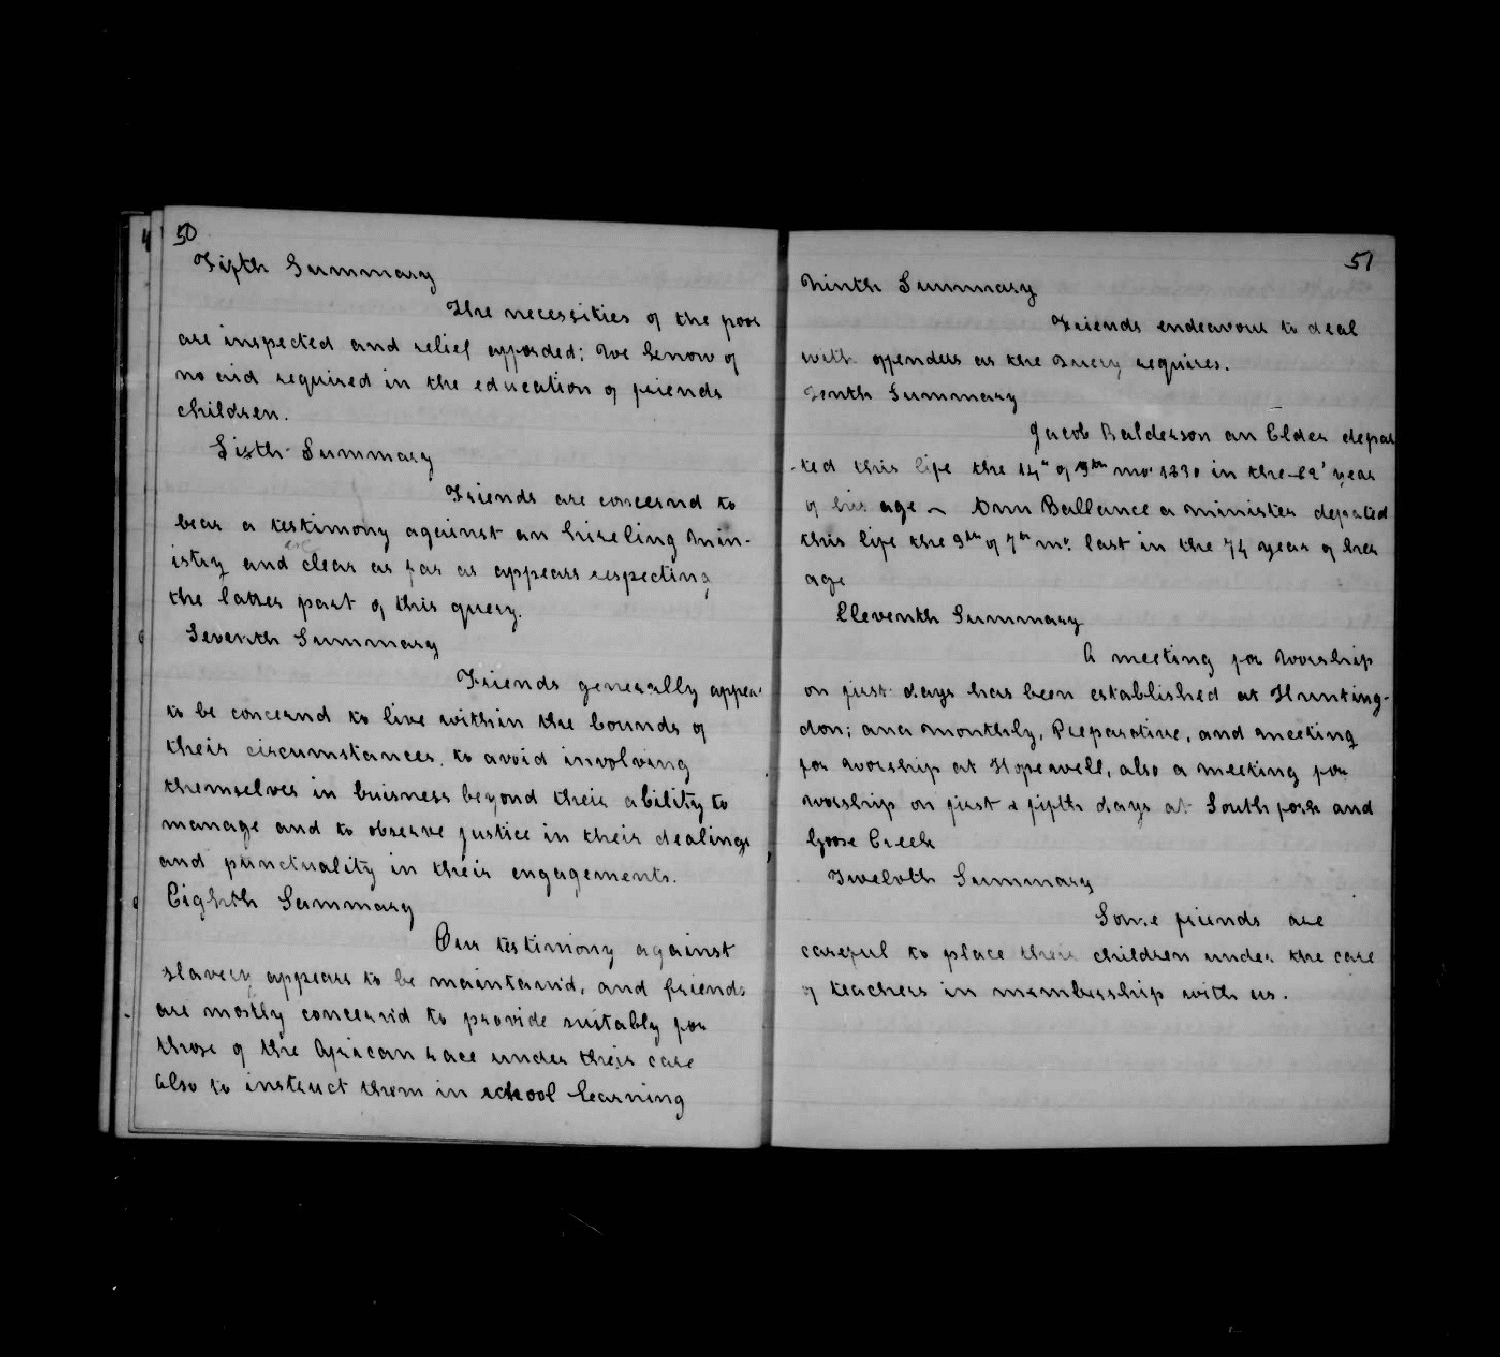 50
Fifth Summary
The necessities of the poor
are inspected and relief afforded; We know of
no aid required in the education of friends
children.
Sixth Summary
Friends are concernd to
bear a testimony against an hireling Min-
istry and are clear as far as appears respecting
the latter part of this query.
Seventh Summary
Friends generally appear
to be concernd to live within the bounds of
their circumstances, to avoid involving
themselves in buisness beyond their ability to
manage and to observe justice in their dealings
and punctuality in their engagements.
Eighth Summary
Our testimony against
slavery appears to be maintain'd, and friends
are mostly concern'd to provide suitably for
those of the African race under their care
also to instruct them in school learning
51
Ninth Summary
Friends endeavour to deal
with offenders as the Query requires.
Tenth Summary
Jacob Balderson an Elder depar
-ted this life the 14th of 9th mo 1830 in the year
of his age ~ Ann Ballance a minister departed
this life the 9th of 7th mo. last in the 74 year of her
age
Eleventh Summary
A meeting for Worship
on first days has been established at Hunting-
don; and monthly, Preparative, and meeting
for worship at Hopewell, also a meeting for
worship on first & fifth days at South fork and
Goose Creek
Twelvth Summary
Some friends are
careful to place their children under the care
of teachers in membership with us.